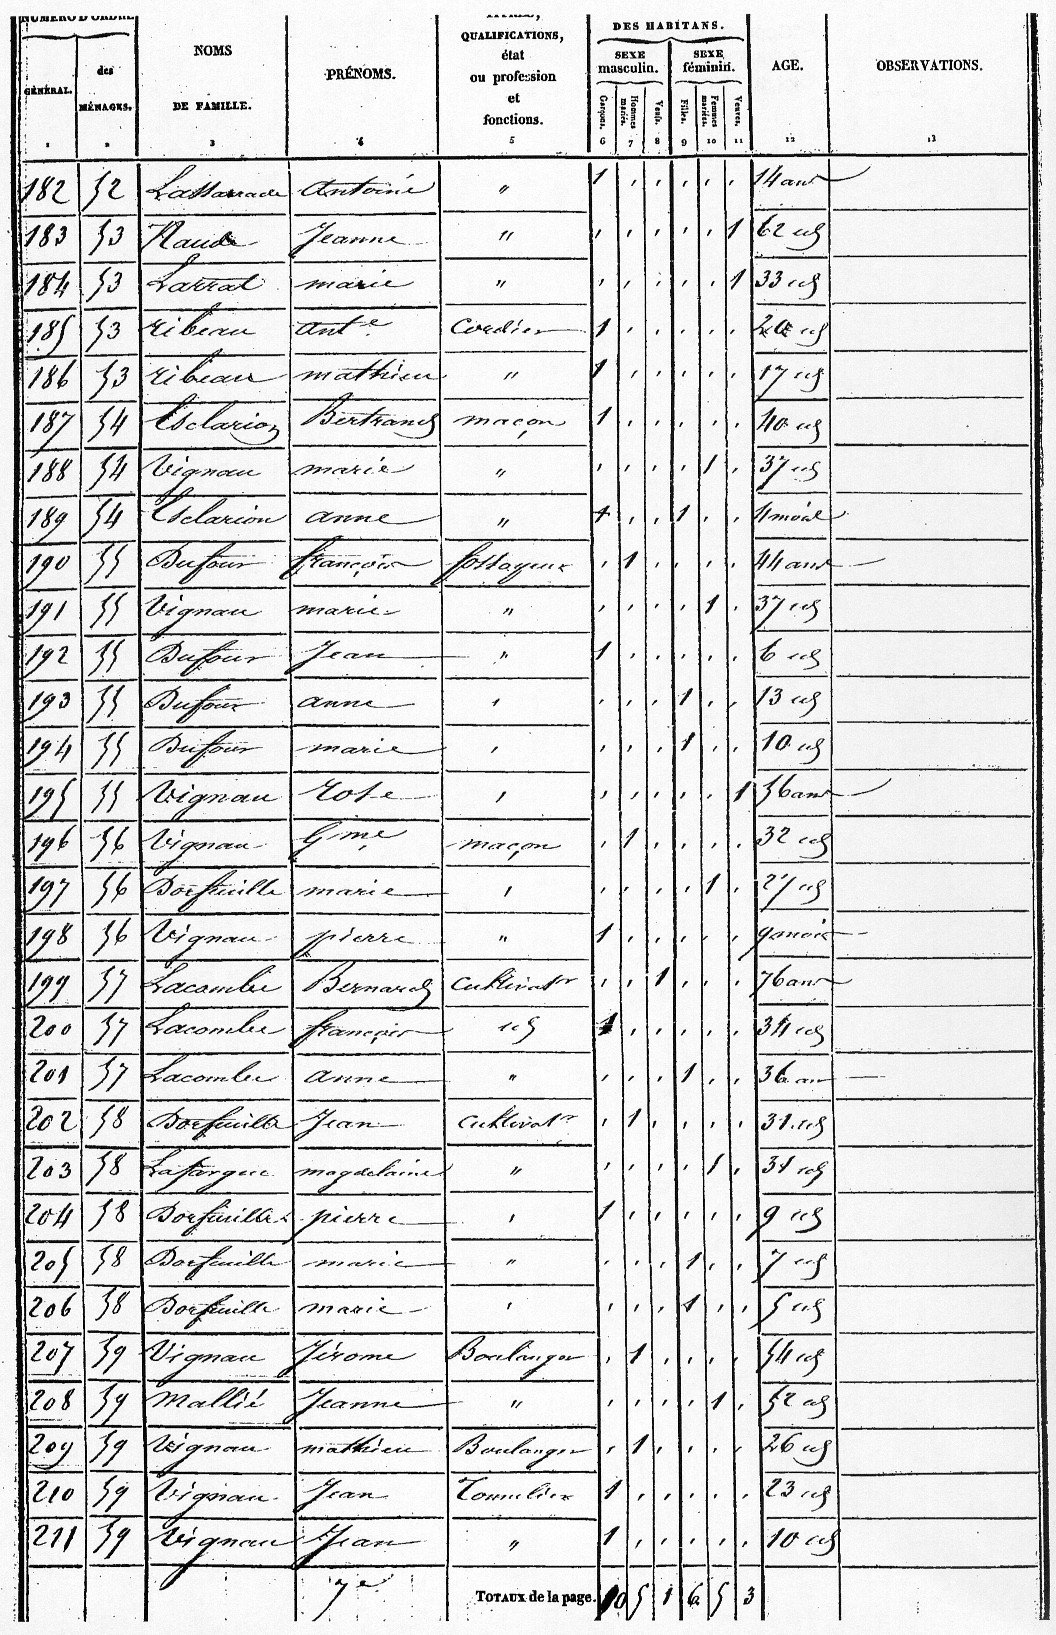 NUMÉRO D'ORDRE
GÉNÉRAL.
des MÉNAGES.
NOMS
DE FAMILLE.
PRÉNOMS.
TITRES,
QUALIFICATIONS,
état
ou profession
et
fonctions.
DES HABITANS.
SEXE masculin.
SEXE féminin.
Garçons.
Hommes mariés.
Veufs.
Filles.
Femmes mariées.
Veuves.
AGE.
OBSERVATIONS.
1 2 3 4 5 6 7 8 9 10 11 12 13
182 52 Lassarrade Antoine " 1 14 ans
183 53 Naude Jeanne " 1 62 id
184 53 Larrat marie " 1 33 id
185 53 ribeau ante Cordier 1 20 id
186 53 ribeau mathieu " 1 17 id
187 54 Esclarion Bertrand maçon 1 40 id
188 54 Vignau marie " 1 37 id
189 54 Esclarion anne " 1 1 4 mois
190 55 Dufour françois fossoyeur 1 44 ans
191 55 Vignau marie " 1 37 id
192 55 Dufour Jean " 1 6 id
193 55 Dufour anne " 1 13 id
194 55 Dufour marie " 1 10 id
195 55 Vignau rose " 1 56 ans
196 56 Vignau Gme maçon 1 32 id
197 56 Dorfeuille marie " 1 27 id
198 56 Vignau pierre " 1 9 mois
199 57 Lacombe Bernard Cultivatr 1 76 ans
200 57 Lacombe françois id 1 34 id
201 57 Lacombe anne " 1 36 an
202 58 Dorfeuille Jean Cultivatr 1 31 id
203 58 Lafargue magdelaine " 1 31 id
204 58 Dorfeuille pierre " 1 9 id
205 58 Dorfeuille marie " 1 7 id
206 58 Dorfeuille marie " 1 5 id
207 59 Vignau Jérome Boulanger 1 54 id
208 59 Mallié Jeanne " 1 52 id
209 59 Vignau mathieu Boulanger 1 26 id
210 59 Vignau Jean Tonnelier 1 23 id
211 59 Vignau Jean " 1 10 id
7e TOTAUX de la page. 10 5 1 6 5 3